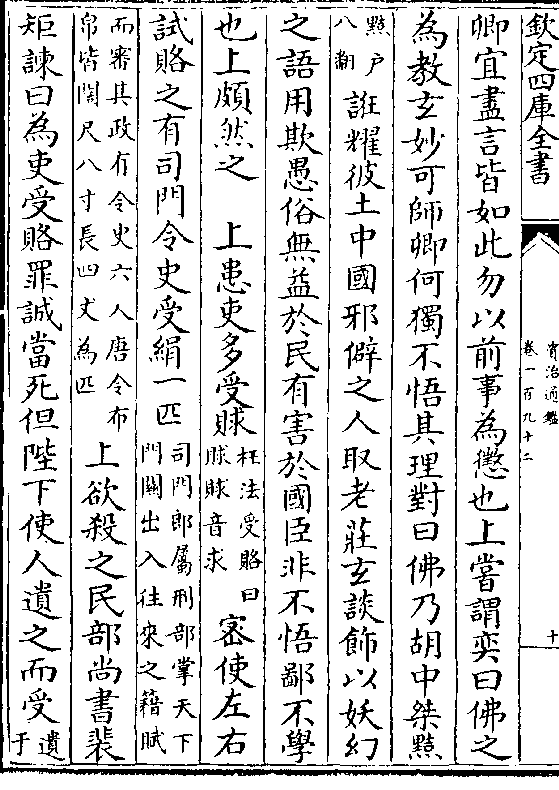 欽定四庫全書
資治通鑑
卷一百九十二
十
卿宜盡言皆如此勿以前事為懲也上嘗謂奕曰佛之
為教玄妙可師卿何獨不悟其理對曰佛乃胡中桀黠
黠戶
八翻
誑耀彼土中國邪僻之人取老莊玄談飾以妖幻
之語用欺愚俗無益於民有害於國臣非不悟鄙不學
也上頗然之　上患吏多受賕
枉法受賂曰
賕賕音求
密使左右
試賂之有司門令史受絹一匹
司門郎屬刑部掌天下
門關出入往來之籍賦
而審其政有令史六人唐令布
帛皆闊尺八寸長四丈為匹
上欲殺之民部尚書裴
矩諫曰為吏受賂罪誠當死但陛下使人遺之而受
遺
于